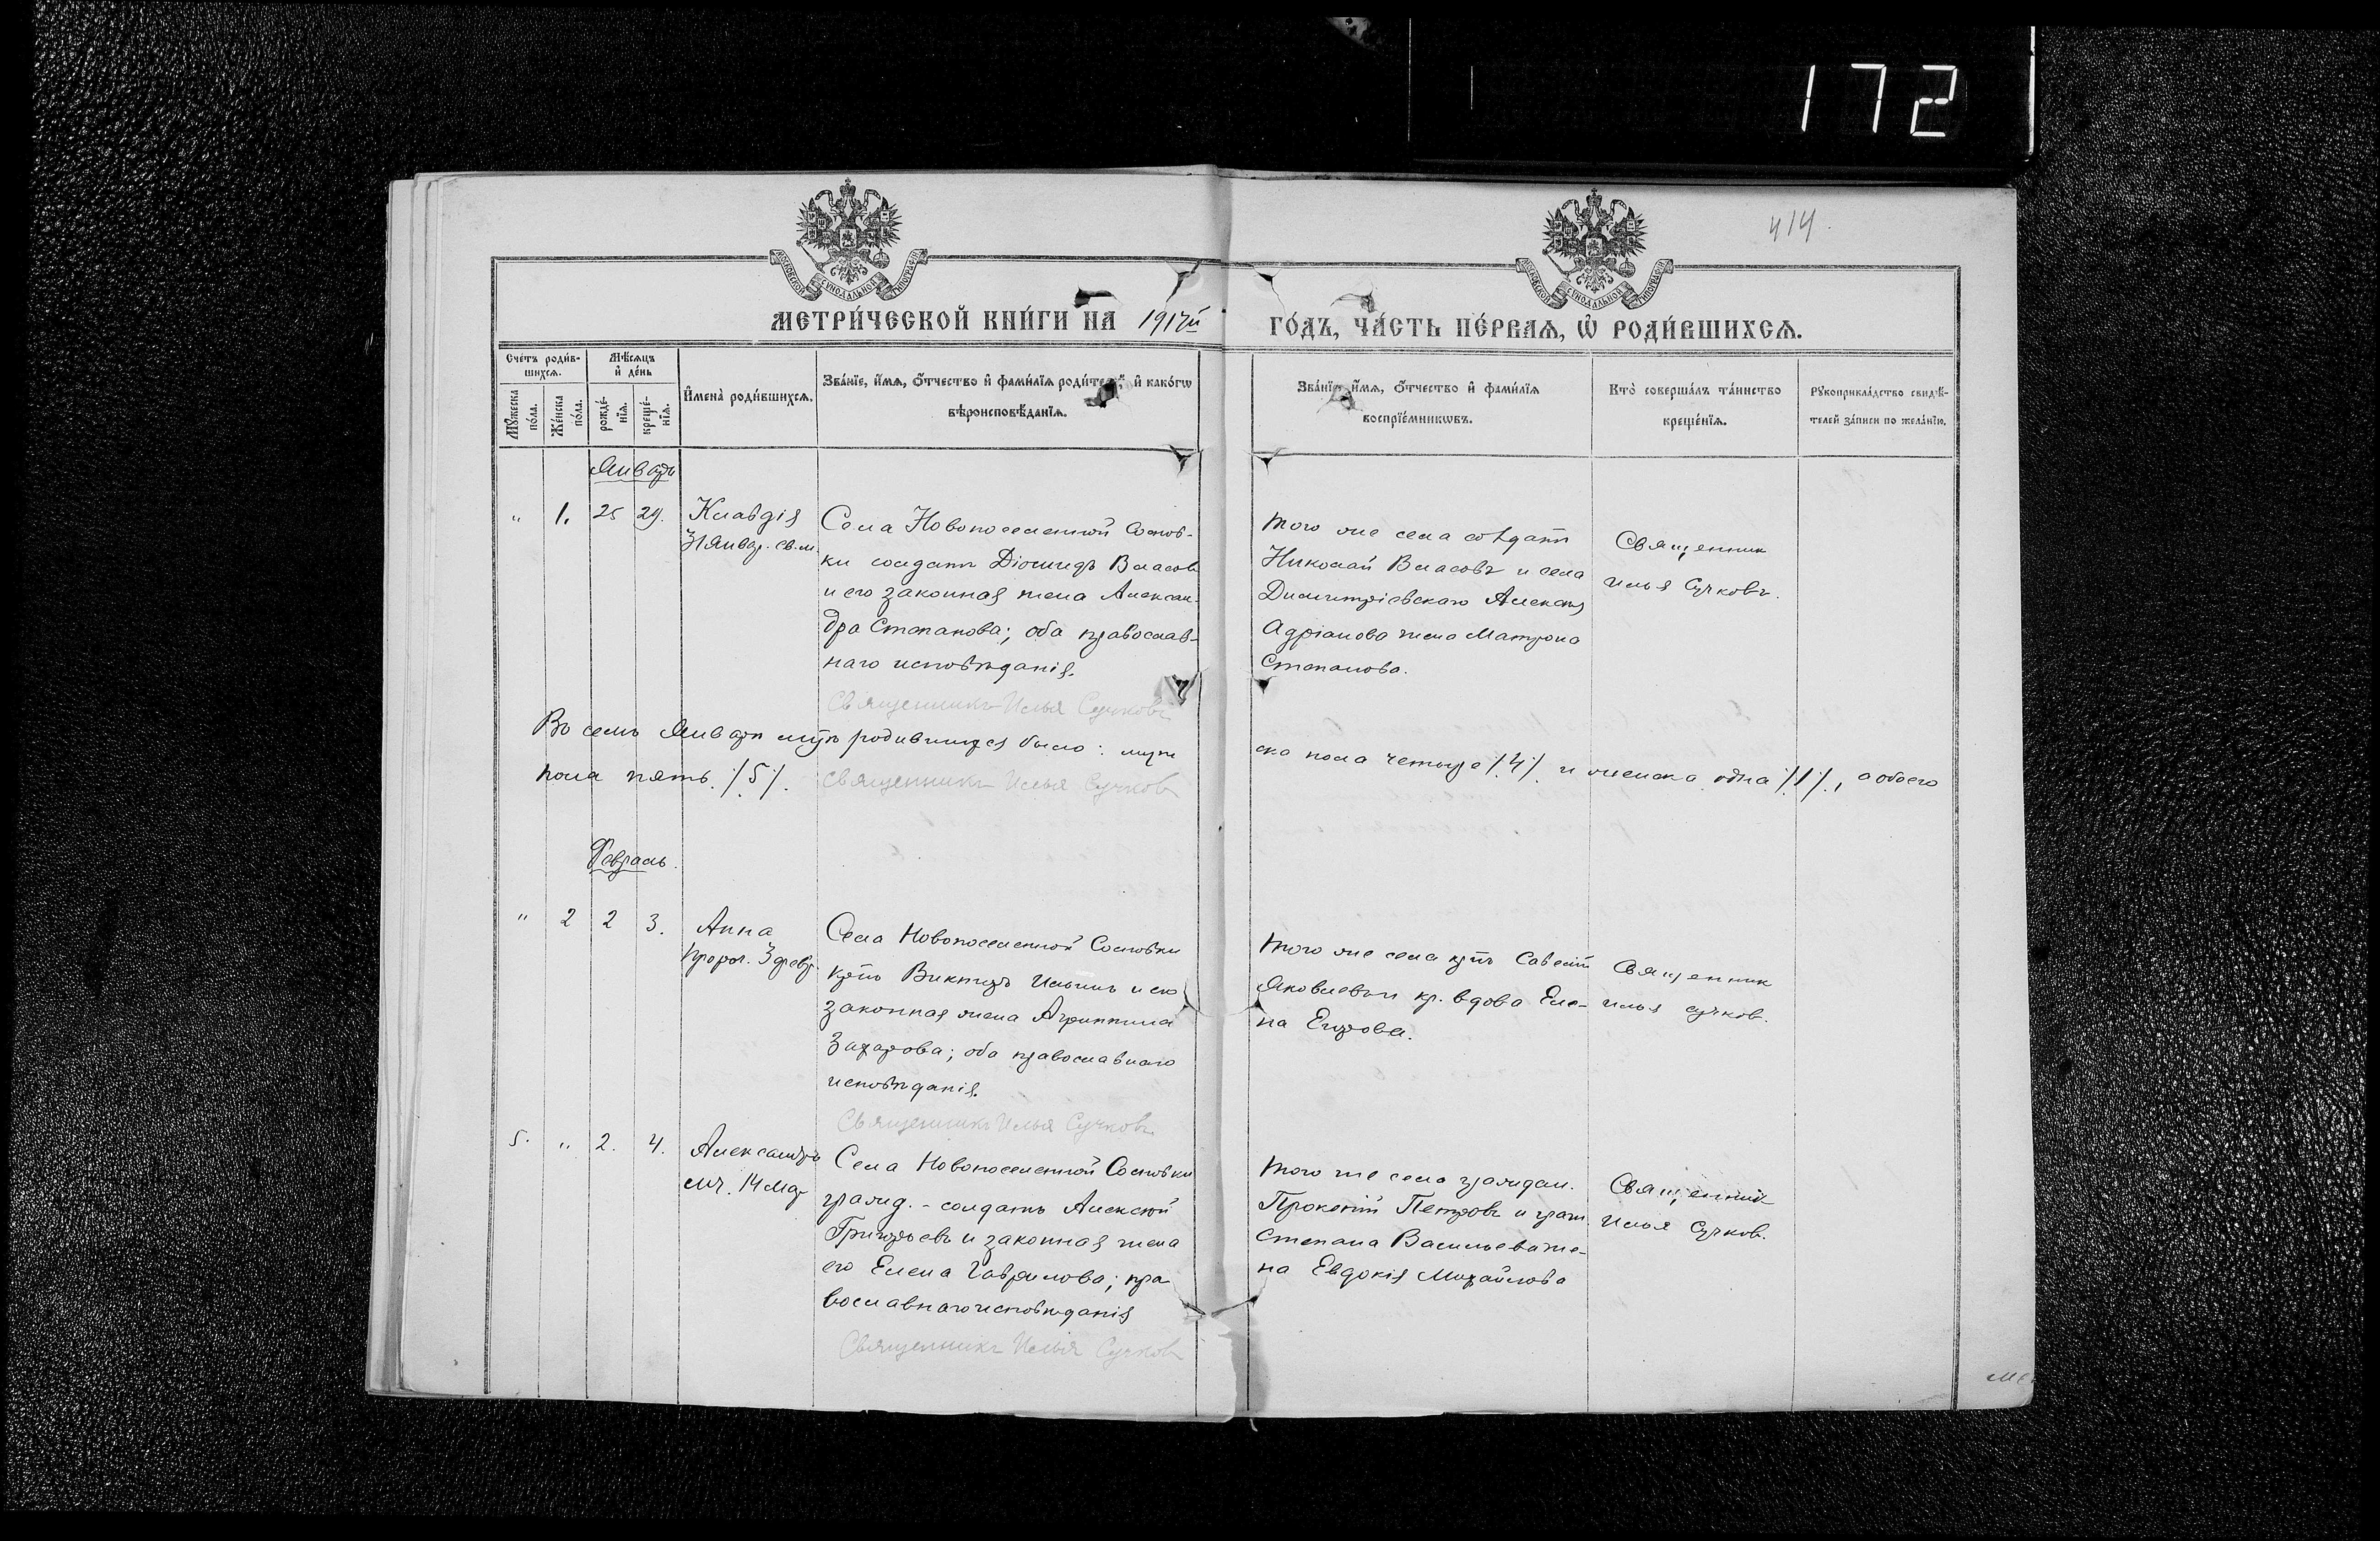 172
414.
МОСКОВСКОЙ СѴНОДАЛЬНОЙ ТИПОГРАФІИ
МОСКОВСКОЙ СѴНОДАЛЬНОЙ ТИПОГРАФІИ
МЕТРИ́ЧЕСКОЙ КНИ́ГИ НА 1917й ГО́ДЪ, ЧА́СТЬ ПЕ́РВАЯ, Ѡ҆ РОДИ́ВШИХСЯ.
Сче́тъ роди́в-
шихся.
Мꙋ́жеска по́ла.
Же́нска по́ла.
Мѣ́сяцъ и҆ де́нь
рожде́-нїя.
креще́-нїя.
И҆мена̀ роди́вшихся.
Зва́нїе, и҆́мя, ѻ҆́тчество и҆ фами́лїя роди́телей, и҆ како́гѡ
вѣроисповѣ́данїя.
Зва́нїе, и҆́мя, ѻ҆́тчество и҆ фами́лїя
воспрїе́мникѡвъ.
Кто̀ соверша́лъ та́инство
креще́нїя.
Рꙋкоприкла́дство свидѣ́-
телей за́писи по жела́нїю.
Январь
" 1. 25 29. Клавдія
31 Январ. св.м.
Села Новопоселенной Соснов-
ки солдатъ Діомидъ Власовъ
и его законная жена Алексан-
дра Степанова; оба православ-
наго исповѣданія.
Священникъ Илья Сучковъ
того же села солдатъ
Николай Власовъ и села
Димитріевскаго Алексѣя
Адріанова жена Матрона
Степанова.
Священник
Илья Сучковъ.
Во семъ Январѣ мѣсяцѣ родившихся было: муже ска пола четыре /.4/. и женска одна /.1/., а обоего
пола пять. /.5/. Священникъ Илья Сучков
Февраль.
" 2 2 3. Анна
прор. 3 февр.
Села Новопоселенной Сосновки
кр-нъ Викторъ Ильинъ и его
законная жена Агриппина
Захарова; оба православнаго
исповѣданія.
Священникъ Илья Сучковъ
того же села кр-нъ Савелій
Яковлевъ и кр. вдова Еле-
на Егорова.
Священник
Илья Сучков.
5. " 2. 4. Александръ
мч. 14 Мар
Села Новопоселенной Сосновки
гражд. - солдатъ Алексѣй
Григорьевъ и законная жена
его Елена Гаврилова; пра
вославнаго исповѣданія
Священникъ Илья Сучков
того же села граждан.
Прокопій Петровъ и граж.
Степана Васильева же-
на Евдокія Михайлова
Священник
Илья Сучков.